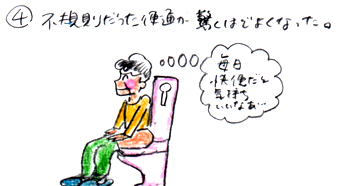 ④ 不規則だった便通が驚くほどよくなった。
毎日
快便だと
気持ち
いいなあ…